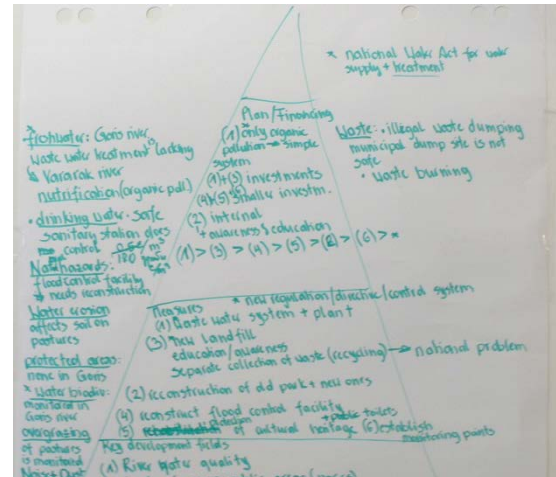 * national Water Act for water
supply + treatment
Plan/Financing
(1) only organic
pollution → simple
system
(1)+(3) investments
(4)+(5) smaller investm.
(2) internal
+ awareness & education
(1) > (3) > (4) > (5) > (2) > (6) > *
* freshwater: Goris river
waste water treatment is lacking
↳ Vararak river
nutrification (organic poll)
• drinking water: safe
sanitary station does
control
180
Nat. hazards:
flood control facility
needs reconstruction
Water erosion
affects soil on
pastures
protected areas:
none in Goris
* Water biodiv:
monitored in
Goris river
overgrazing
of pastures
is monitored
Noise + Dust
Waste: • illegal waste dumping
municipal dump site is not
safe
• waste burning
Measures * new regulation/directive/control system
(1) Waste water system + plant
(3) new landfill
education/awareness
separate collection of waste (recycling) → national problem
(2) reconstruction of old park + new ones
(4) reconstruct flood control facility + public toilets
(5) of cultural heritage (6) establish
monitoring points
Key development fields
(1) River water quality